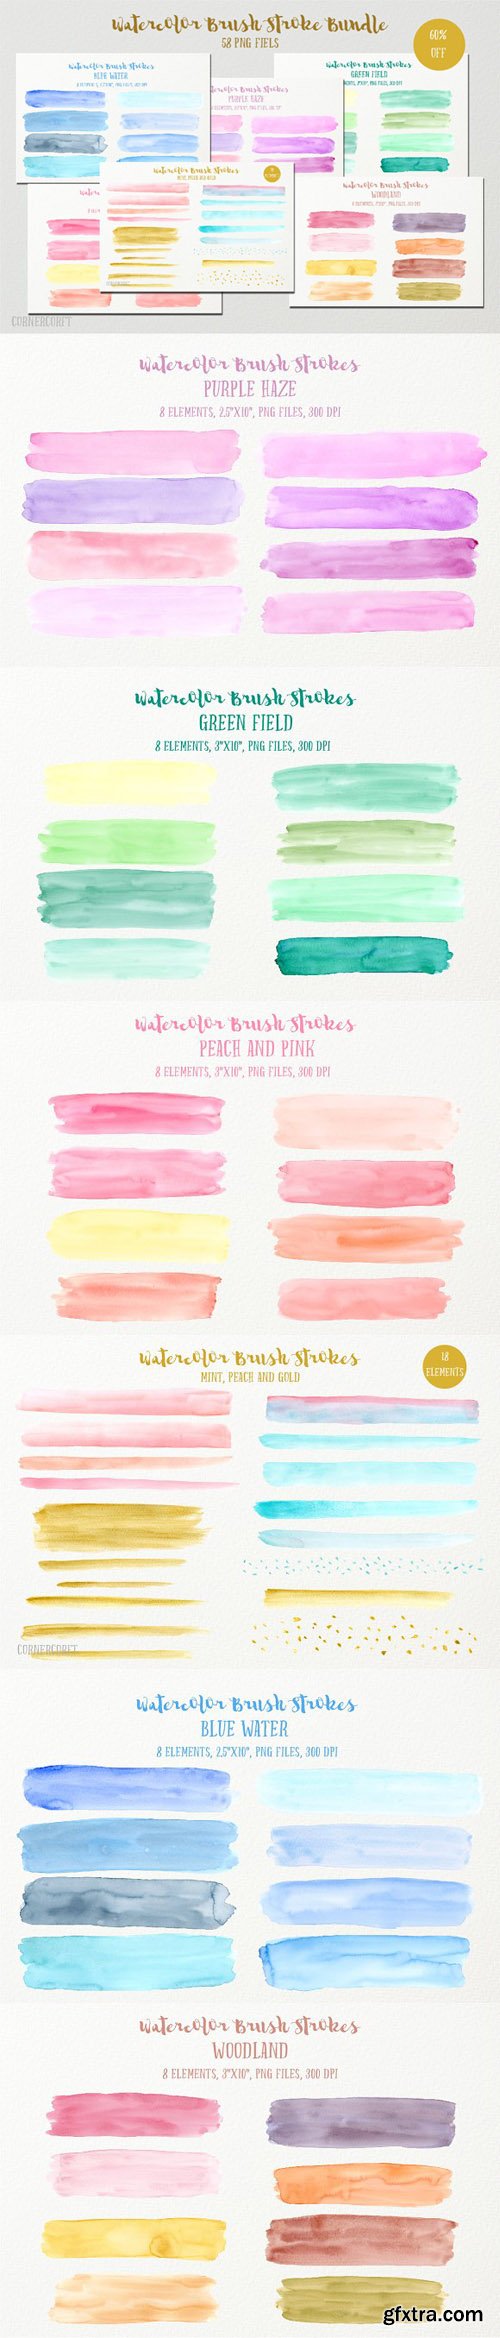 Watercolor Brush Stroke Bundle
58 PNG FIELS
60%
OFF
Watercolor Brush Strokes
BLUE WATER
8 ELEMENTS, 2.5"X10", PNG FILES, 300 DPI
Watercolor Brush Strokes
PURPLE HAZE
Watercolor Brush Strokes
GREEN FIELD
8 ELEMENTS, 3"X10", PNG FILES, 300 DPI
Watercolor Brush Strokes
MINT, PEACH AND GOLD
18
ELEMENTS
Watercolor Brush Strokes
WOODLAND
8 ELEMENTS, 3"X10", PNG FILES, 300 DPI
CORNERCORFT
Watercolor Brush Strokes
PURPLE HAZE
8 ELEMENTS, 2.5"X10", PNG FILES, 300 DPI
Watercolor Brush Strokes
GREEN FIELD
8 ELEMENTS, 3"X10", PNG FILES, 300 DPI
Watercolor Brush Strokes
PEACH AND PINK
8 ELEMENTS, 3"X10", PNG FILES, 300 DPI
Watercolor Brush Strokes
MINT, PEACH AND GOLD
18
ELEMENTS
CORNERCORFT
Watercolor Brush Strokes
BLUE WATER
8 ELEMENTS, 2.5"X10", PNG FILES, 300 DPI
Watercolor Brush Strokes
WOODLAND
8 ELEMENTS, 3"X10", PNG FILES, 300 DPI
gfxtra.com